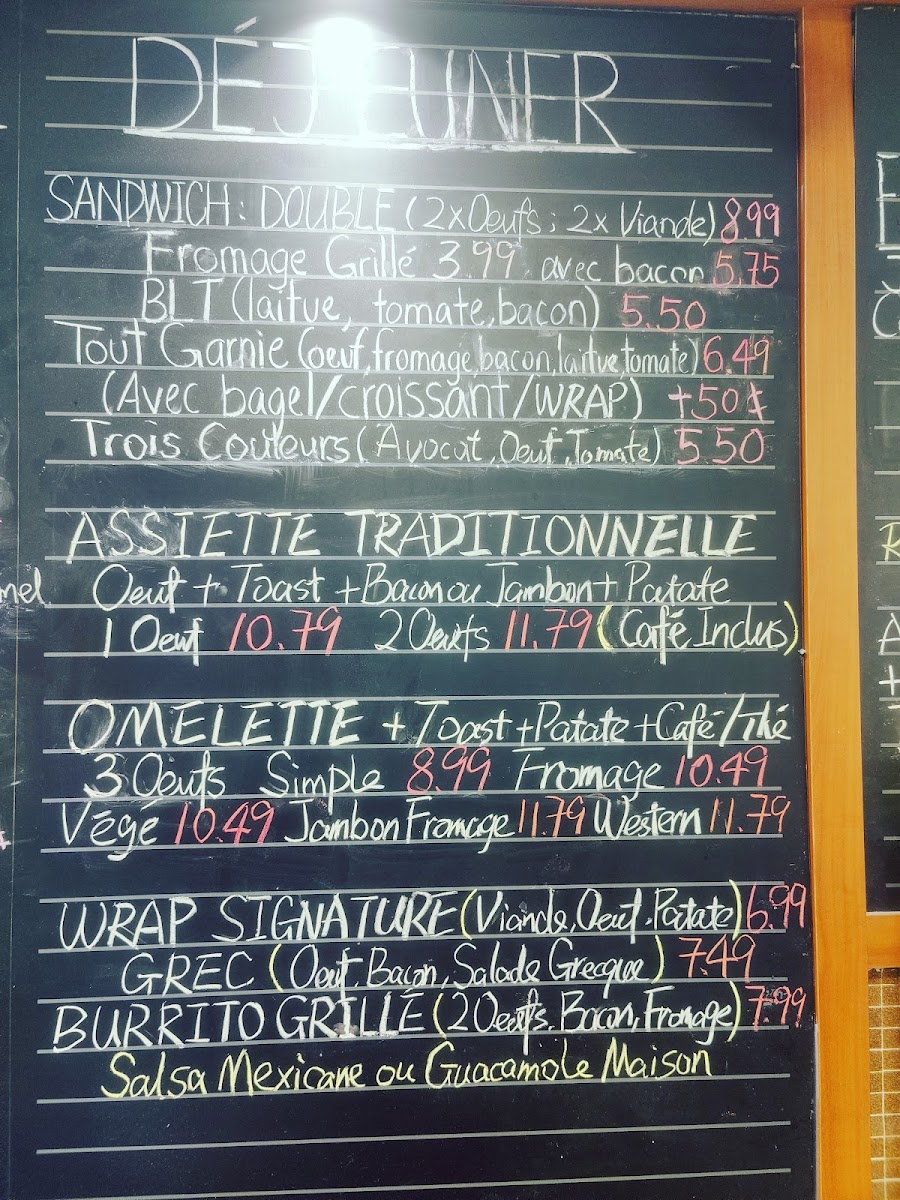 DÉJEUNER
SANDWICH: DOUBLE (2xOeufs; 2x Viande) 8.99
Fromage Grillé 3.99, avec bacon 5.75
BLT (laitue, tomate, bacon) 5.50
Tout Garnie (oeuf, fromage, bacon, laitue, tomate) 6.49
(Avec bagel/croissant/WRAP) +50¢
Trois Couleurs (Avocat, Oeuf, Tomate) 5.50
ASSIETTE TRADITIONNELLE
Oeuf + Toast + Bacon ou Jambon + Patate
1 Oeuf 10.79 2 Oeufs 11.79 (Café Inclus)
OMELETTE + Toast + Patate + Café/Thé
3 Oeufs Simple 8.99 Fromage 10.49
Végé 10.49 Jambon Fromage 11.79 Western 11.79
WRAP SIGNATURE (Viande, Oeuf, Patate) 6.99
GREC (Oeuf, Bacon, Salade Grecque) 7.49
BURRITO GRILLÉ (2 Oeufs, Bacon, Fromage) 7.99
Salsa Mexicane ou Guacamole Maison